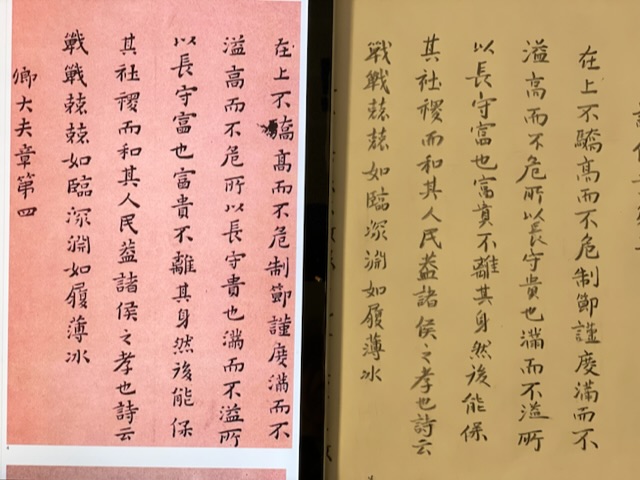 在上不驕高而不危制節謹度滿而不
溢高而不危所以長守貴也滿而不溢所
以長守富也富貴不離其身然後能保
其社稷而和其人民蓋諸侯之孝也詩云
戰戰兢兢如臨深淵如履薄冰
卿大夫章第四
在上不驕高而不危制節謹度滿而不
溢高而不危所以長守貴也滿而不溢所
以長守富也富貴不離其身然後能保
其社稷而和其人民蓋諸侯之孝也詩云
戰戰兢兢如臨深淵如履薄冰